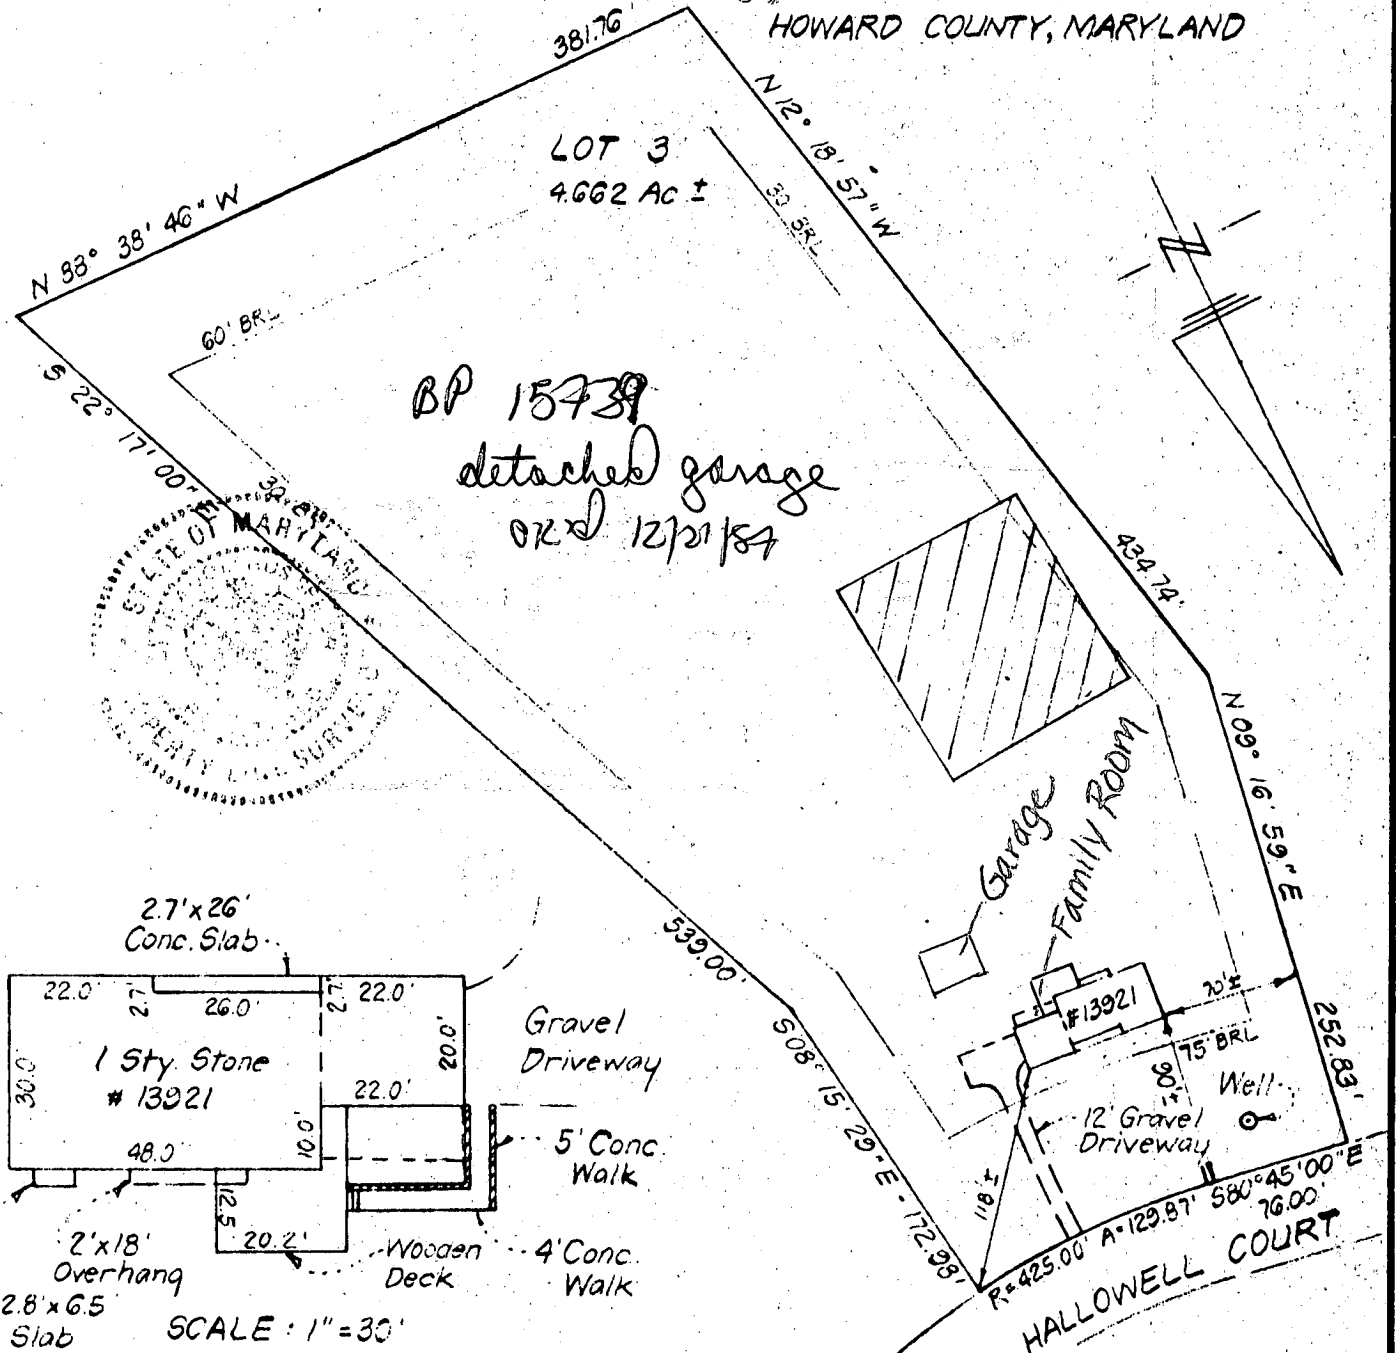 HOWARD COUNTY, MARYLAND
381.76'
N 12° 18' 57" W
LOT 3
4.662 AC ±
30 BRL
N 88° 38' 46" W
60' BRL
S 22° 17' 00" E
BP 15739
detached garage
OK'd 12/21/84
STATE OF MARYLAND
N
434.74'
N 09° 16' 59" E
252.83'
Garage
Family Room
#13921
70'±
75' BRL
90'±
Well
12' Gravel
Driveway
118'±
539.00'
S 08° 15' 29" E - 172.98'
R=425.00' A=129.87' S80°45'00"E
76.00'
HALLOWELL COURT
2.7'x26'
Conc. Slab
22.0'
2.7
26.0'
2.7
22.0'
30.0
1 Sty. Stone
# 13921
20.0'
22.0'
48.0'
10.0'
12.5
20.2'
Gravel
Driveway
5' Conc.
Walk
4' Conc.
Walk
Wooden
Deck
2'x18'
Overhang
2.8'x6.5
Slab
SCALE : 1"=30'